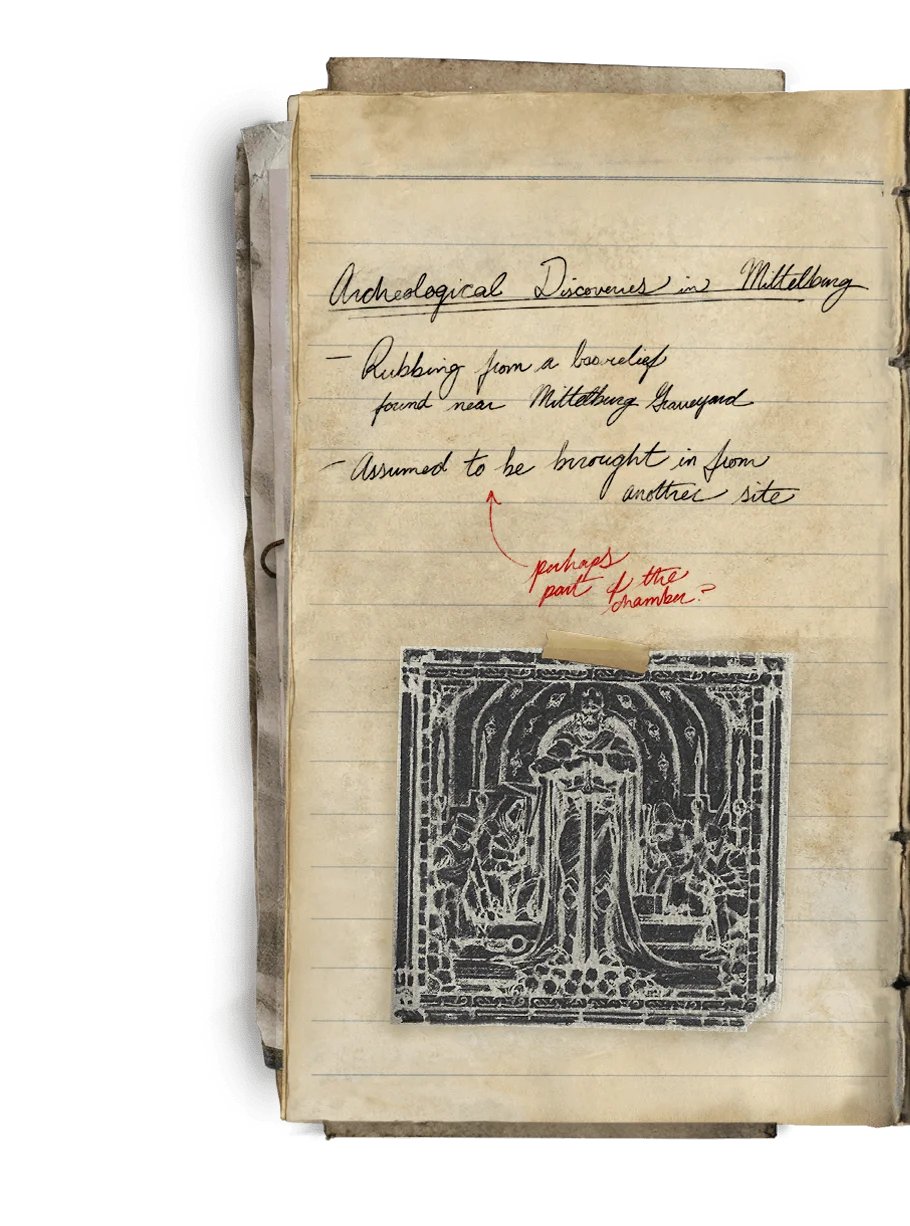 Archeological Discoveries in Mittelburg
– Rubbing from a basrelief
found near Mittelburg Graveyard
– Assumed to be brought in from
another site
perhaps
part of the
chamber?